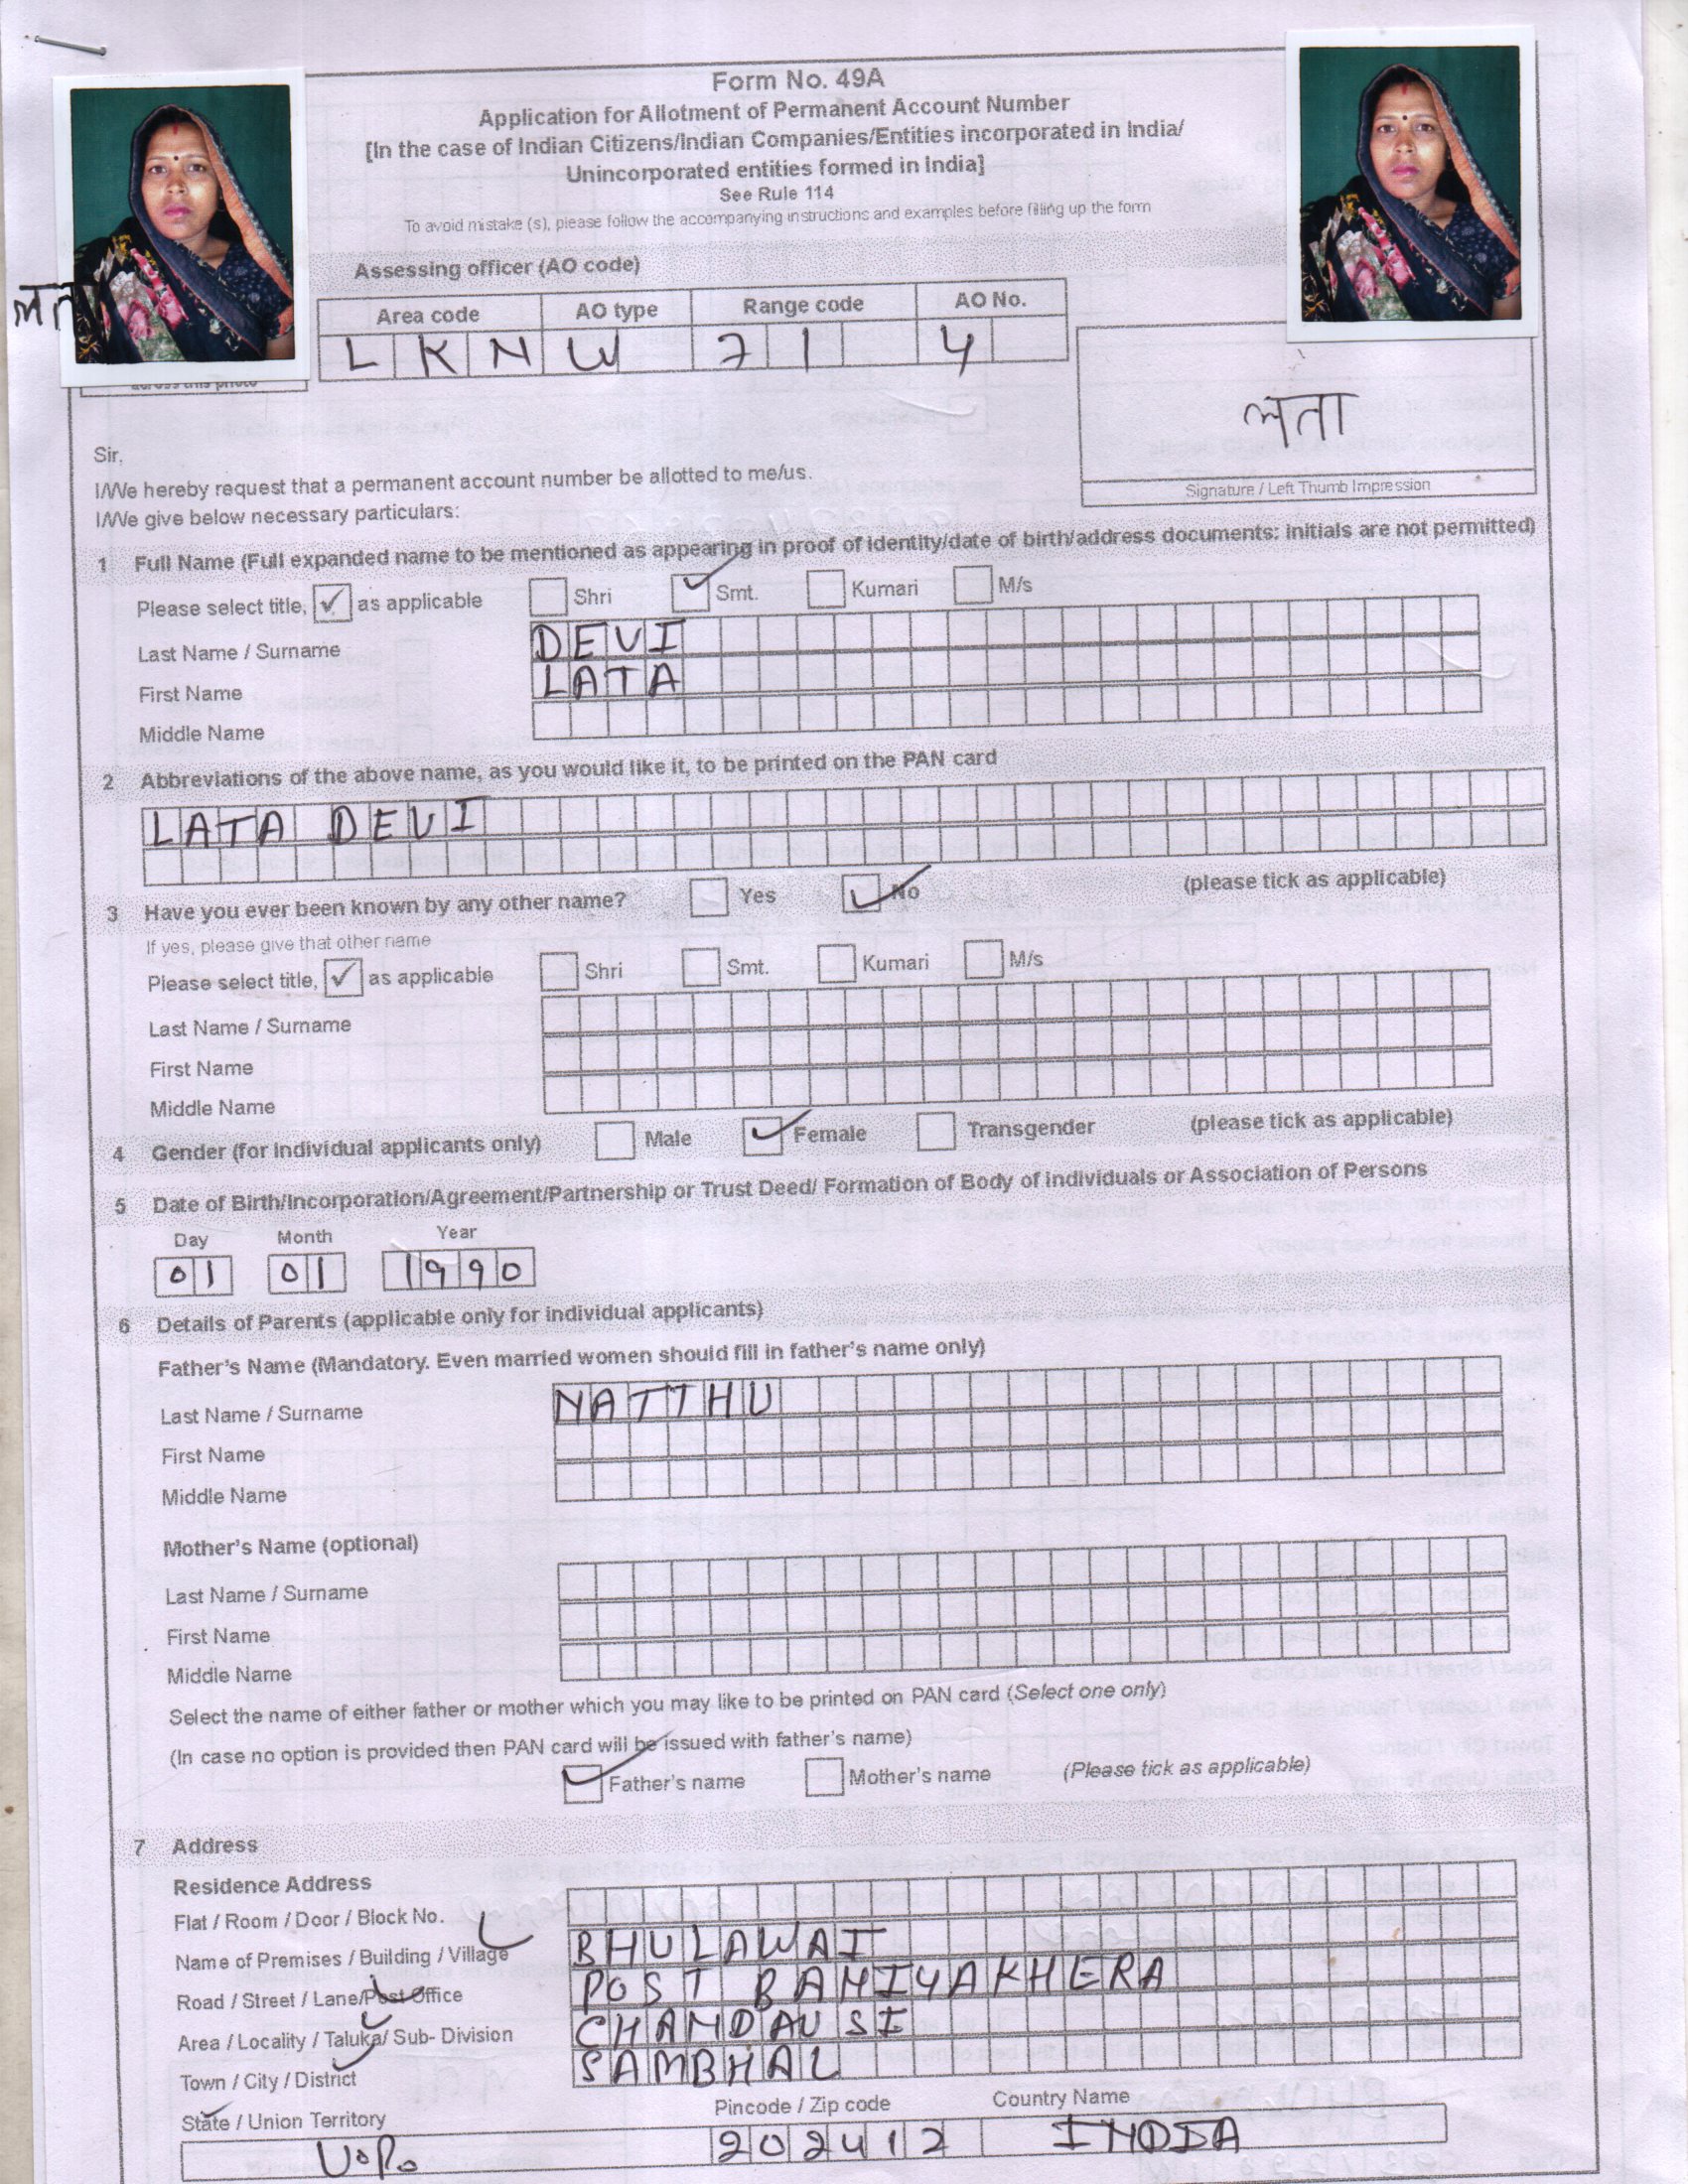 Form No. 49A
Application for Allotment of Permanent Account Number
[In the case of Indian Citizens/Indian Companies/Entities incorporated in India/
Unincorporated entities formed in India]
See Rule 114
To avoid mistake (s), please follow the accompanying instructions and examples before filling up the form
Assessing officer (AO code)
Area code AO type Range code AO No.
L K N W 71 4
लता
across this photo
लता
Signature / Left Thumb Impression
Sir,
I/We hereby request that a permanent account number be allotted to me/us.
I/We give below necessary particulars:
1 Full Name (Full expanded name to be mentioned as appearing in proof of identity/date of birth/address documents: initials are not permitted)
Please select title, ✓ as applicable Shri ✓ Smt. Kumari M/s
Last Name / Surname DEVI
First Name LATA
Middle Name
2 Abbreviations of the above name, as you would like it, to be printed on the PAN card
LATA DEVI
3 Have you ever been known by any other name? Yes ✓ No (please tick as applicable)
If yes, please give that other name
Please select title, ✓ as applicable Shri Smt. Kumari M/s
Last Name / Surname
First Name
Middle Name
4 Gender (for individual applicants only) Male ✓ Female Transgender (please tick as applicable)
5 Date of Birth/Incorporation/Agreement/Partnership or Trust Deed/ Formation of Body of individuals or Association of Persons
Day Month Year
01 01 1990
6 Details of Parents (applicable only for individual applicants)
Father's Name (Mandatory. Even married women should fill in father's name only)
Last Name / Surname NATTHU
First Name
Middle Name
Mother's Name (optional)
Last Name / Surname
First Name
Middle Name
Select the name of either father or mother which you may like to be printed on PAN card (Select one only)
(In case no option is provided then PAN card will be issued with father's name)
✓ Father's name Mother's name (Please tick as applicable)
7 Address
Residence Address
Flat / Room / Door / Block No.
Name of Premises / Building / Village BHULAWAI
Road / Street / Lane/Post Office POST BANIYAKHERA
Area / Locality / Taluka/ Sub- Division CHANDAUSI
Town / City / District SAMBHAL
State / Union Territory Pincode / Zip code Country Name
U.P. 202412 INDIA